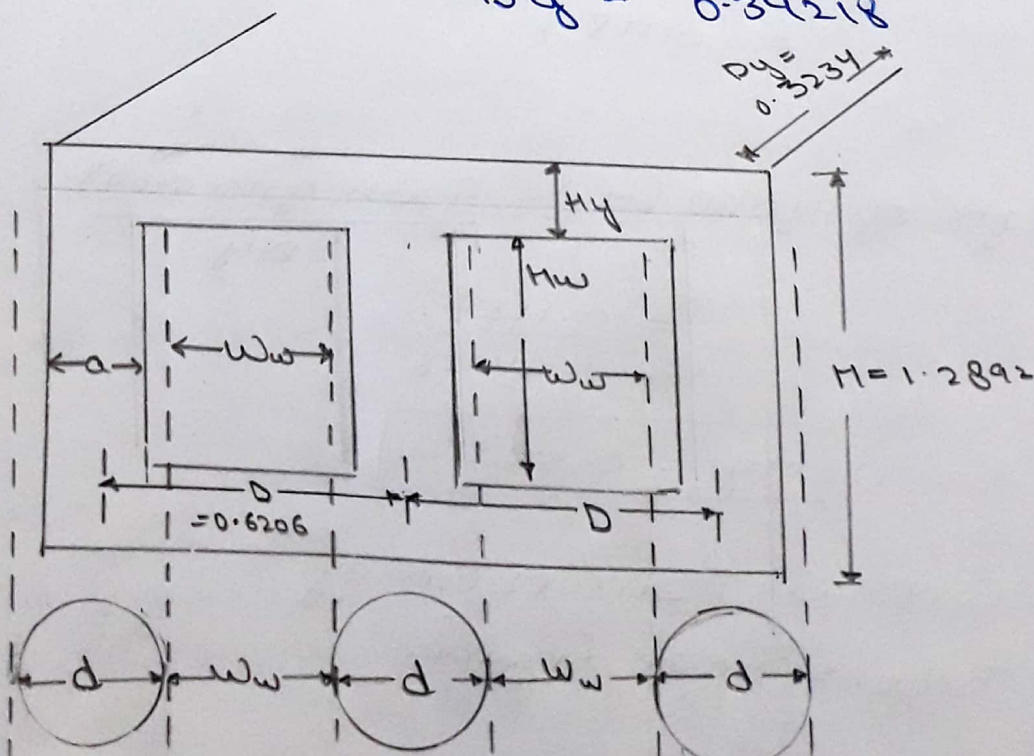 0.34218
Dy=
0.3234
Hy
Hw
a
Ww
Ww
H=1.2892
D
=0.6206
D
d
Ww
d
Ww
d